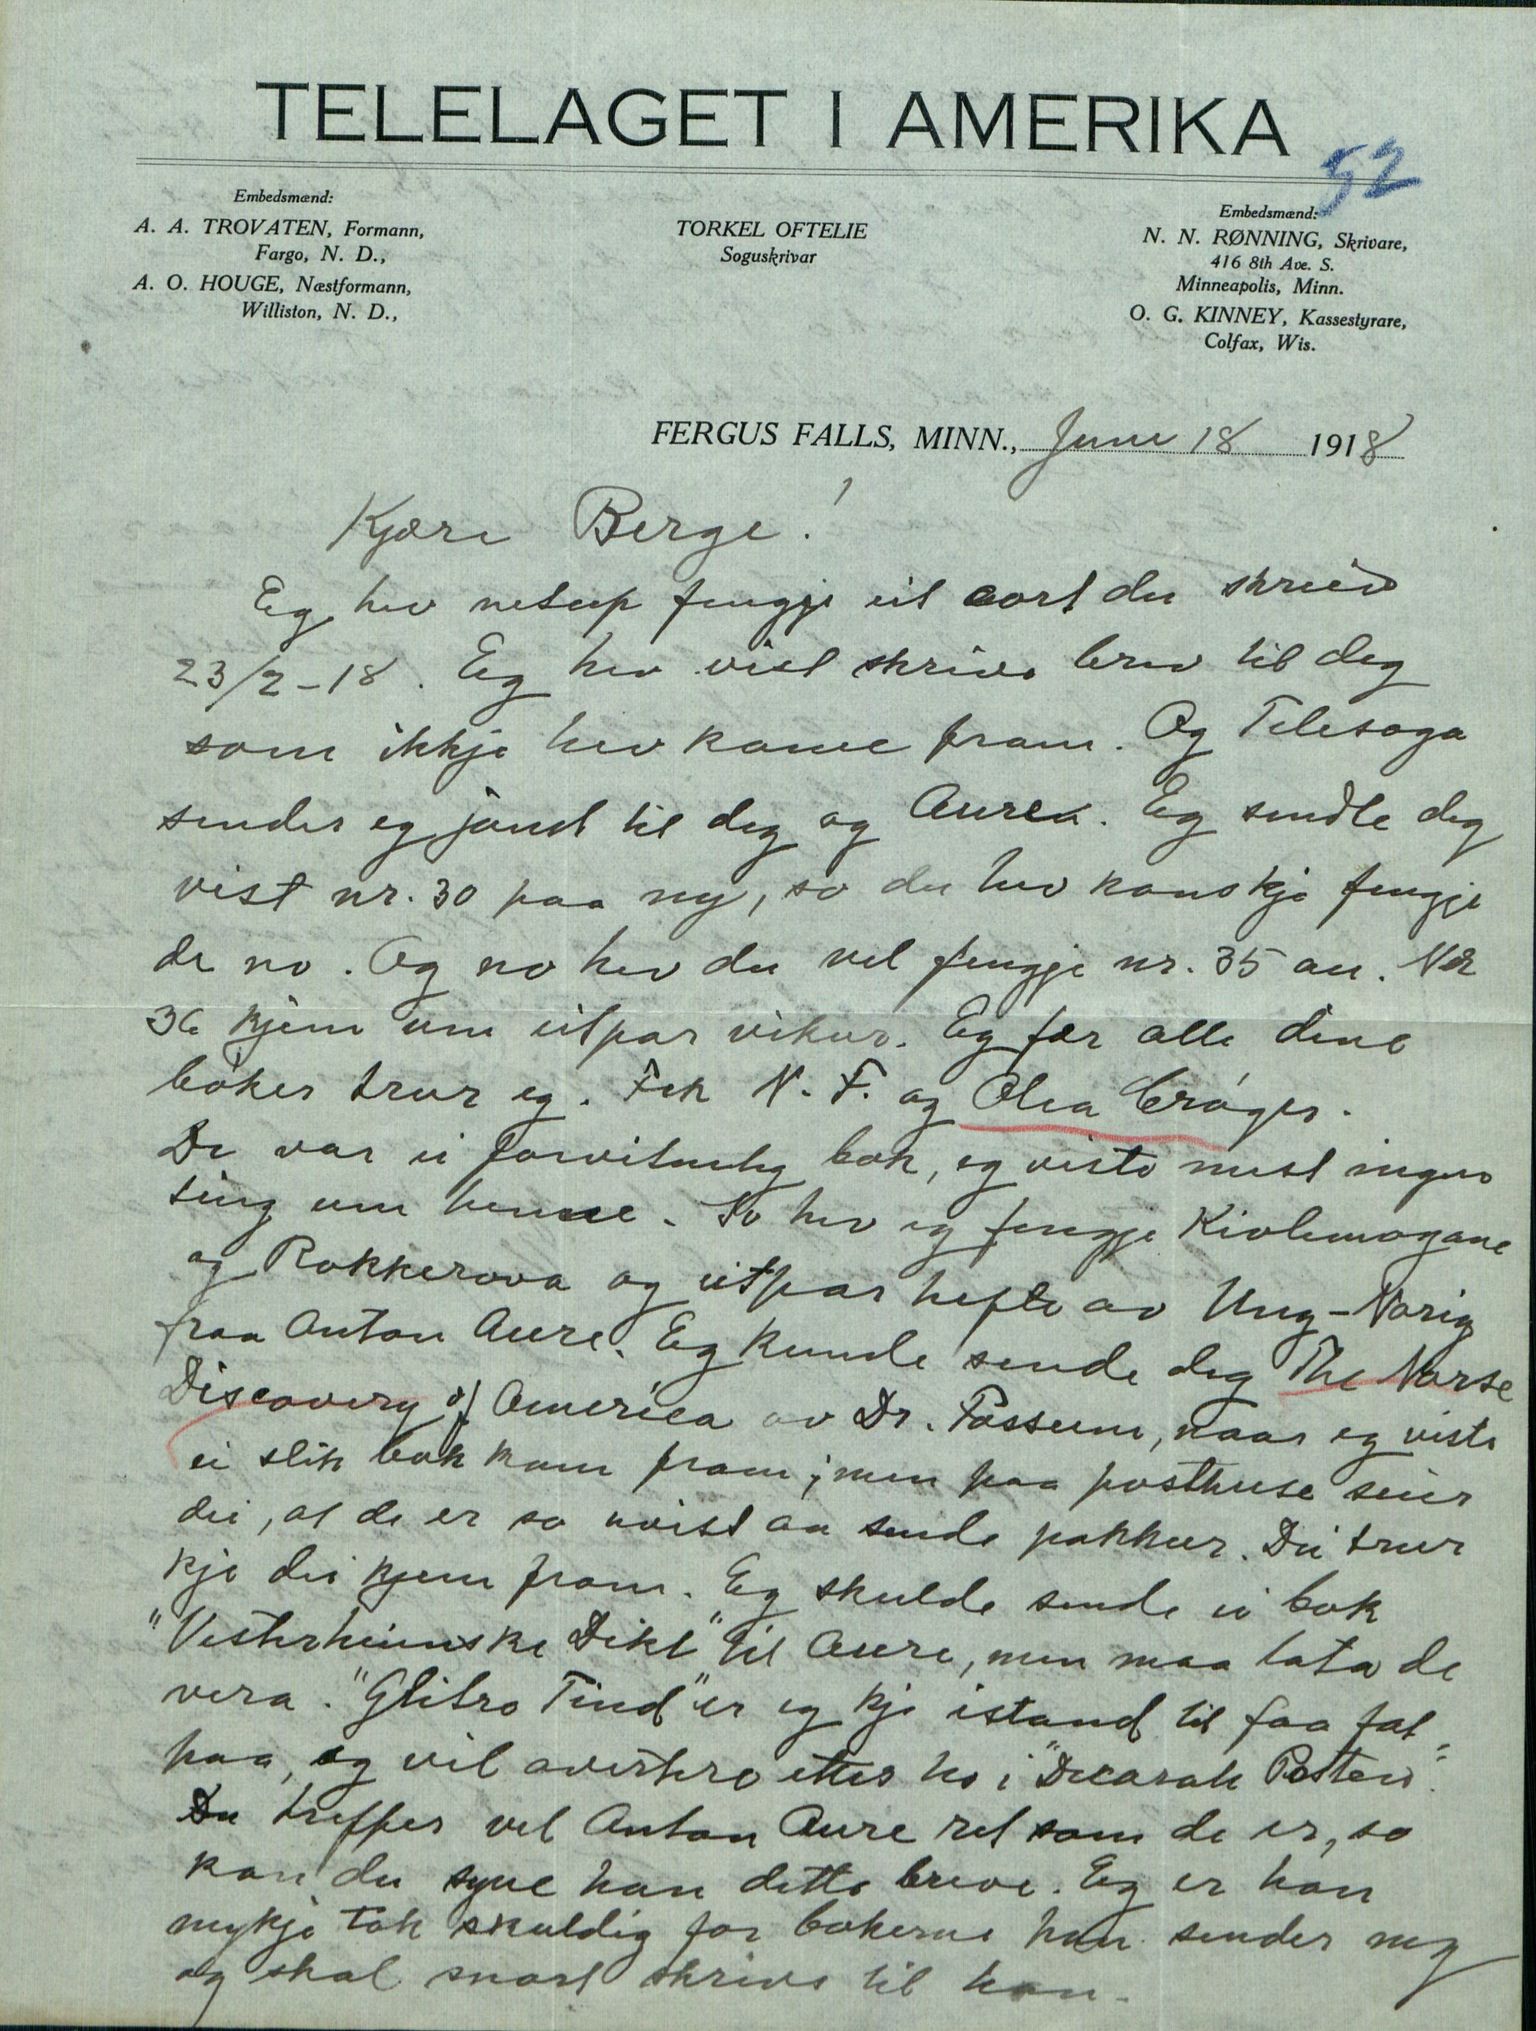 TELELAGET I AMERIKA
52
Embedsmænd:
A. A. TROVATEN, Formann,
Fargo, N. D.,
A. O. HOUGE, Næstformann,
Williston, N. D.,
TORKEL OFTELIE
Soguskrivar
Embedsmænd:
N. N. RØNNING, Skrivare,
416 8th Ave. S.
Minneapolis, Minn.
O. G. KINNEY, Kassestyrare,
Colfax, Wis.
FERGUS FALLS, MINN., June 18 1918
Kjære Berge!
Eg hev netup fengje eit cort du skreiv
23/2-18. Eg hev vist skrive brev til deg
som ikkje hev kome fram. Og Telesoga
sender eg jamt til deg og Aure. Eg sendte deg
vist nr. 30 paa ny, so du hev kanskje fengje
de no. Og no hev du vel fengje nr. 35 au. Nr
36 kjem um eitpar vikur. Eg fær alle dine
bøker trur eg. Fek N. F. og Olea Crøger.
De var ei forvitneleg bok, eg viste mest ingen
ting um henne. So hev eg fengje Kivlemøyane
og Rokkerova og eitpar hefte av Ung-Norig
fraa Anton Aure. Eg kunde sende deg The Norse
Discovery of America av Dr. Fossum, naar eg viste
ei slik bok kom fram; men paa posthuse seier
dei, at de er so uvist aa sende pakkur. Dei trur
kje dei kjem fram. Eg skulde sende ei bok
"Vesterheimske Dikt" til Aure, men maa lata de
vera. "Glitre Tind" er eg kje istand til faa fat
paa, eg vil avertere etter ho i "Decorah Posten".
Du treffer vel Anton Aure ret som de er, so
kan du syne han dette breve. Eg er han
mykje tak skuldig for bøkerne han sender meg
og skal snart skrive til han.